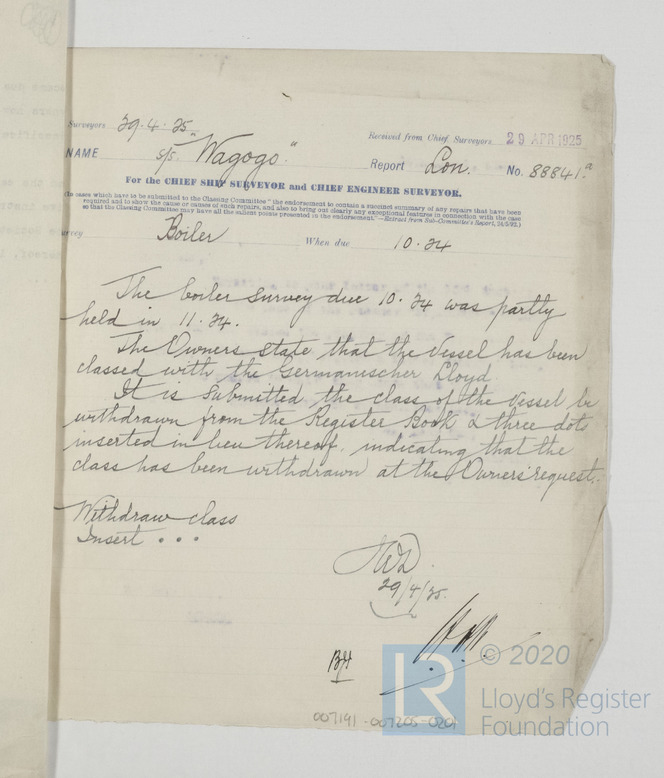 Surveyors 29.4.25
Received from Chief Surveyors 29 APR 1925
NAME S/S. "Wagogo" Report Lon. No. 88841.a
For the CHIEF SHIP SURVEYOR and CHIEF ENGINEER SURVEYOR.
(In cases which have to be submitted to the Classing Committee "the endorsement to contain a succinct summary of any repairs that have been
required and to show the cause or causes of such repairs, and also to bring out clearly any exceptional features in connection with the case
so that the Classing Committee may have all the salient points presented in the endorsement."—Extract from Sub-Committee's Report,
urvey Boiler When due 10.24
The boiler survey due 10.24 was partly
held in 11.24.
The Owners state that the Vessel has been
classed with the Germanischer Lloyd
It is submitted the class of the Vessel be
withdrawn from the Register Book & three dots
inserted in lieu thereof, indicating that the
class has been withdrawn at the Owners' request.
Withdraw class
Insert . . .
29/4/25.
BH
LR
© 2020
Lloyd's Register
Foundation
007191-007205-0201